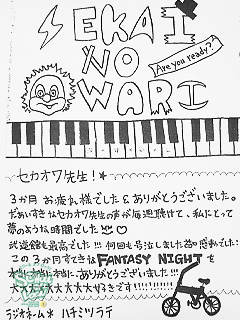 SEKAI
NO
WARI
Are you ready?
セカオワ先生!
3か月お疲れ様でした&ありがとうございました。
だあいすきなセカオワ先生の声が毎週聴けて、私にとって
夢のような時間でした!!
武道館も最高でした!!! 何回も号泣しました
この3か月すてきなFANTASY NIGHTを
本当に本当に本当に、ありがとうございました!!!
大大大大大大大大大好きです!!!
ラジオネーム* ハチミツラテ